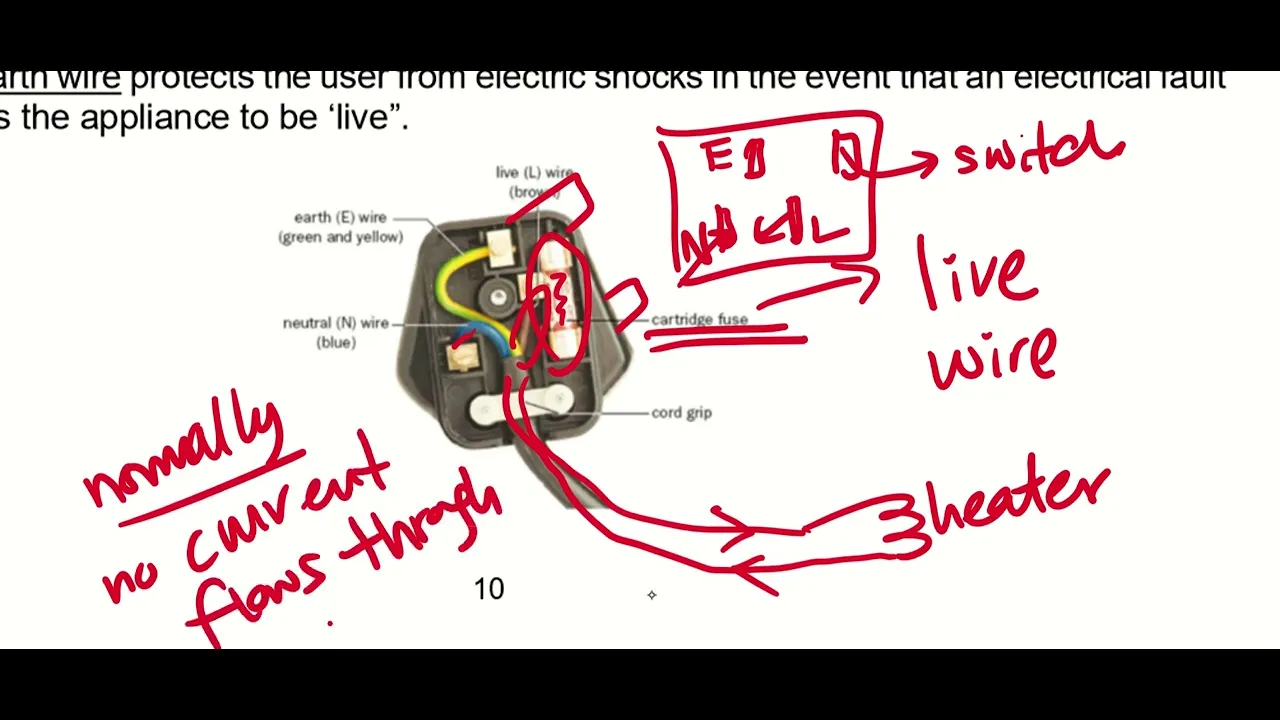 arth wire protects the user from electric shocks in the event that an electrical fault
s the appliance to be ‘live”.
live (L) wire
(brown)
earth (E) wire
(green and yellow)
neutral (N) wire
(blue)
cartridge fuse
cord grip
E
N
L
switch
live
wire
heater
normally
no current
flows through
10